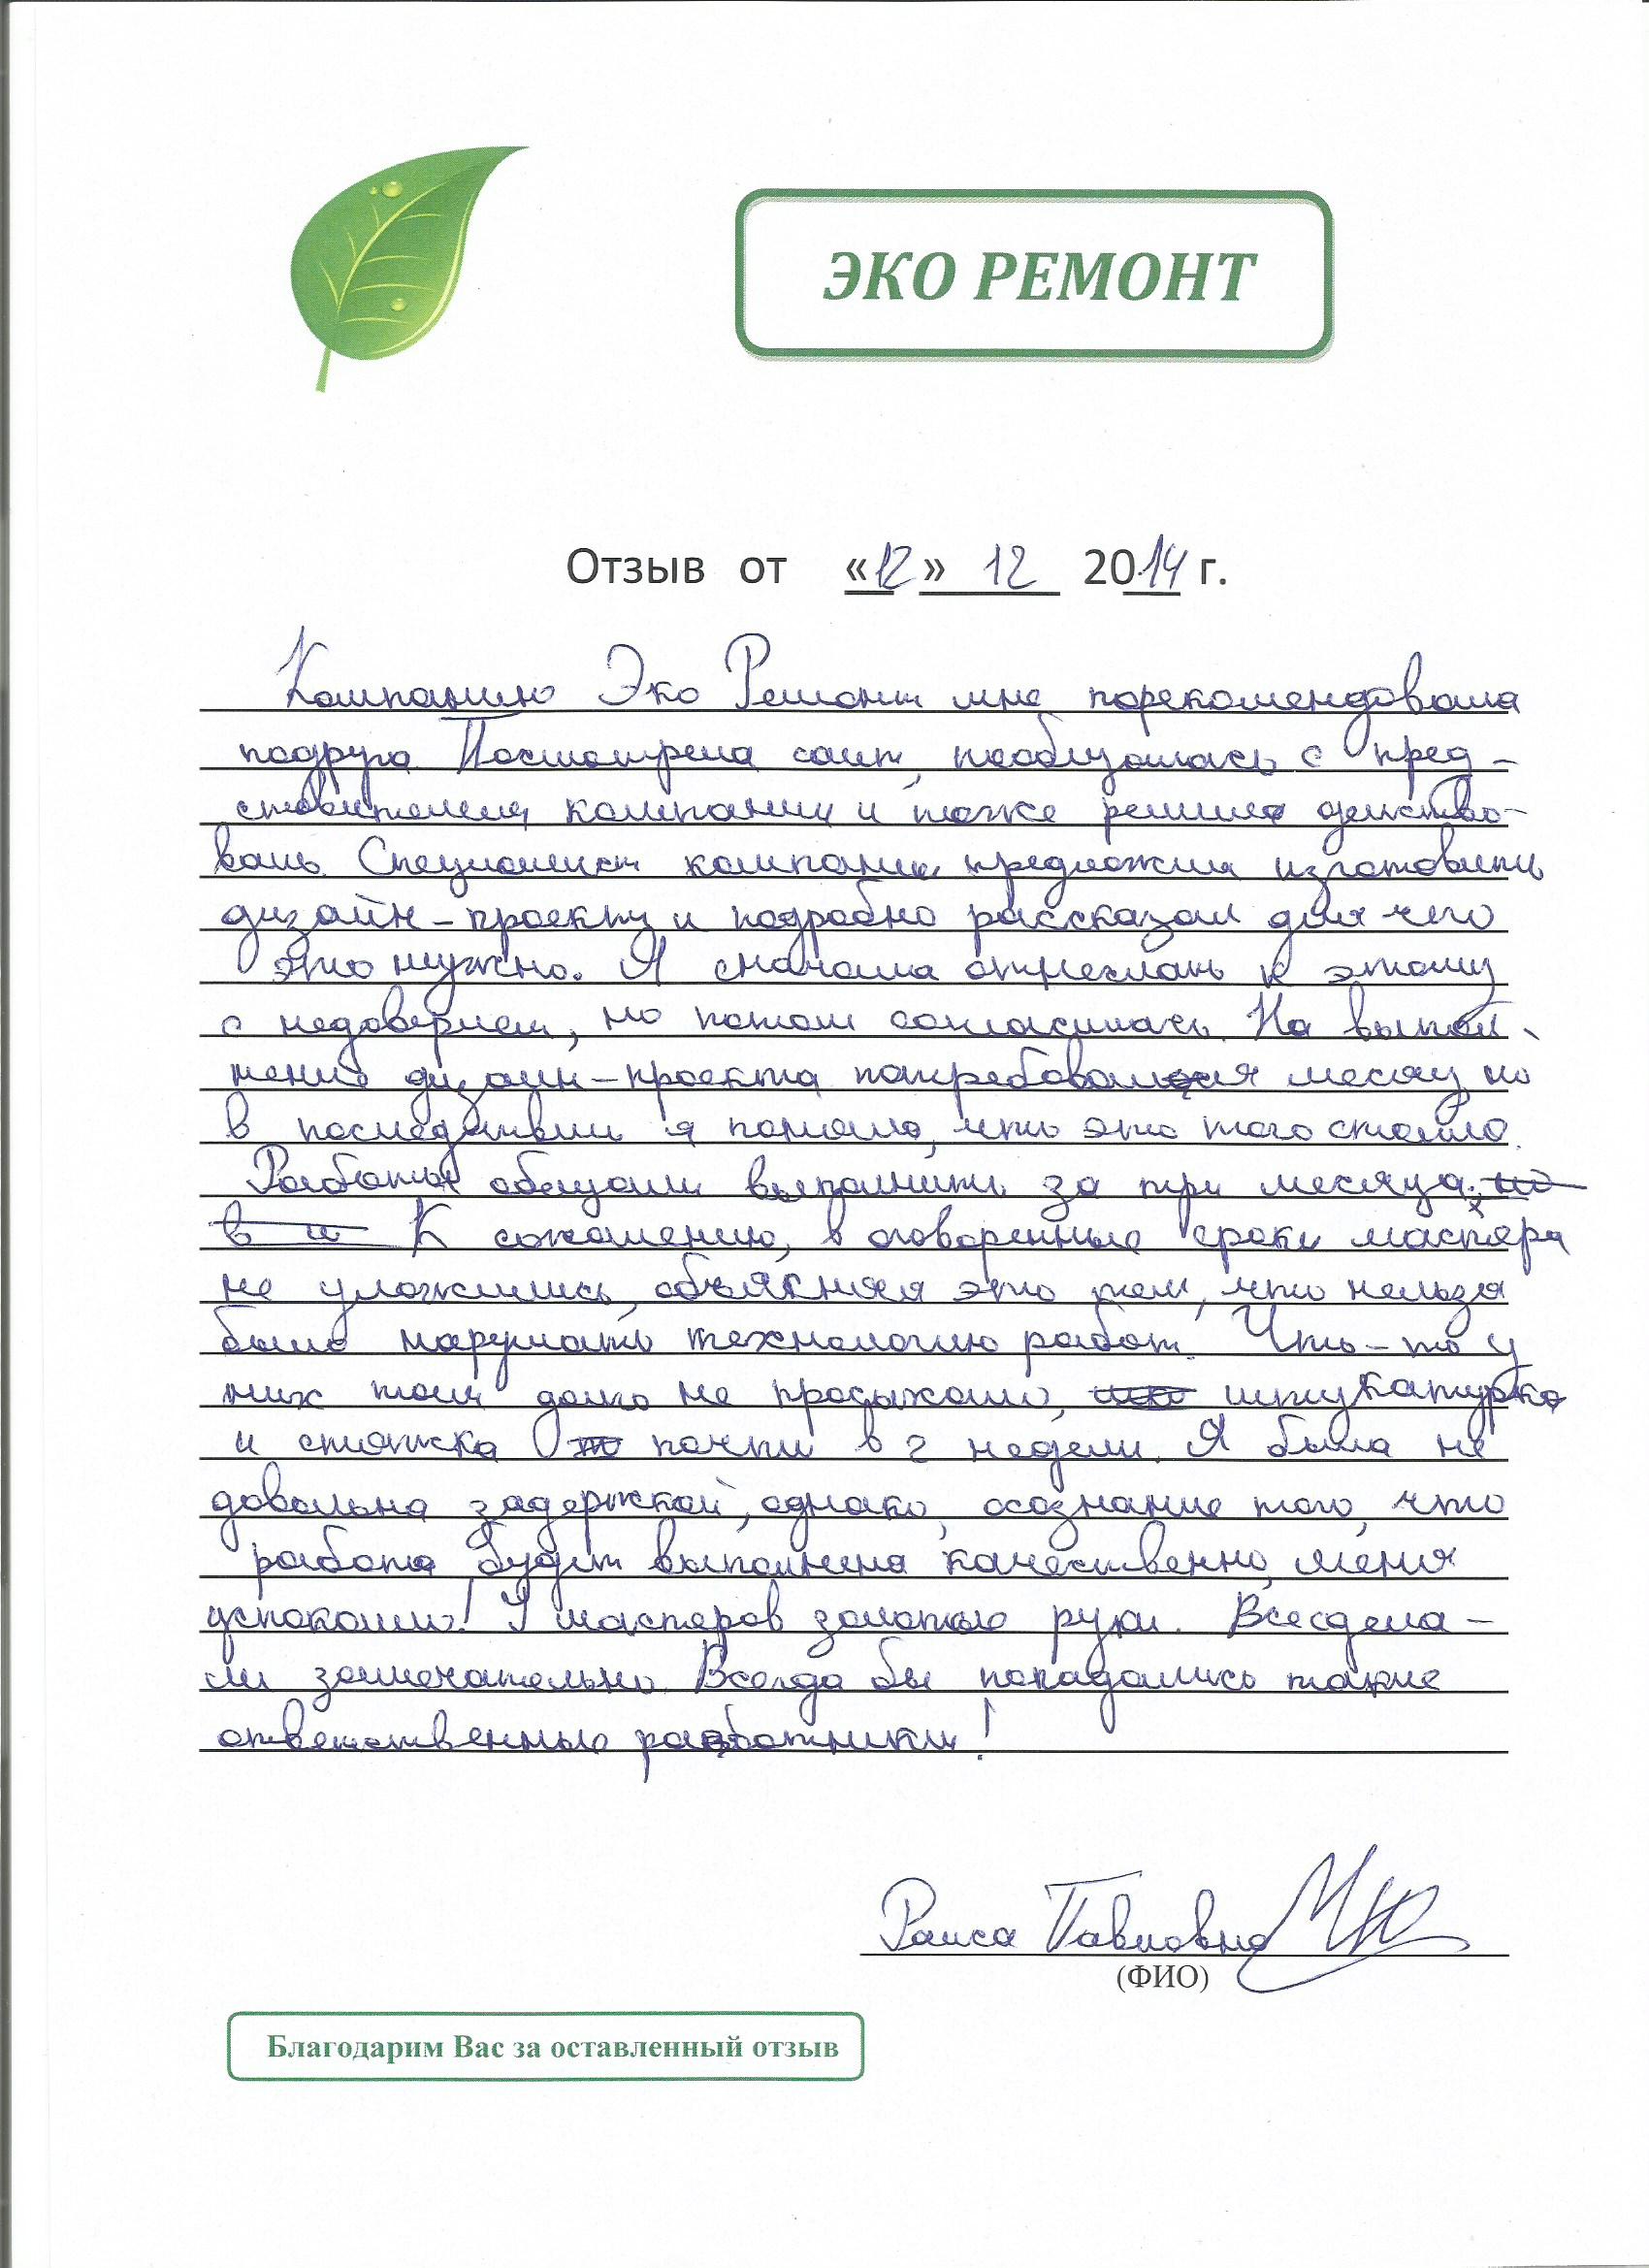 ЭКО РЕМОНТ
Отзыв от «12» 12 2014 г.
Компанию Эко Ремонт мне порекомендовала
подруга. Посмотрела сайт, пообщалась с пред-
ставителем компании и тоже решила действо-
вать. Специалист компании предложил изготовить
дизайн-проект и подробно рассказал для чего
это нужно. Я сначала отнеслась к этому
с недоверием, но потом согласилась. На выпол-
нение дизайн-проекта потребовался месяц, но
в последствии я поняла, что это того стоило.
Работы обещали выполнить за три месяца.
К сожалению, в оговоренные сроки мастера
не уложились, объясняя это тем, что нельзя
было нарушать технологию работ. Что-то у
них там долго не просыхало, штукатурка
и стяжка почти в 2 недели. Я была не
довольна задержкой, однако, осознание того, что
работа будет выполнена качественно, меня
успокоило! У мастеров золотые руки. Все сдела-
ли замечательно. Всегда бы попадались такие
ответственные работники!
Раиса Павловна
(ФИО)
Благодарим Вас за оставленный отзыв